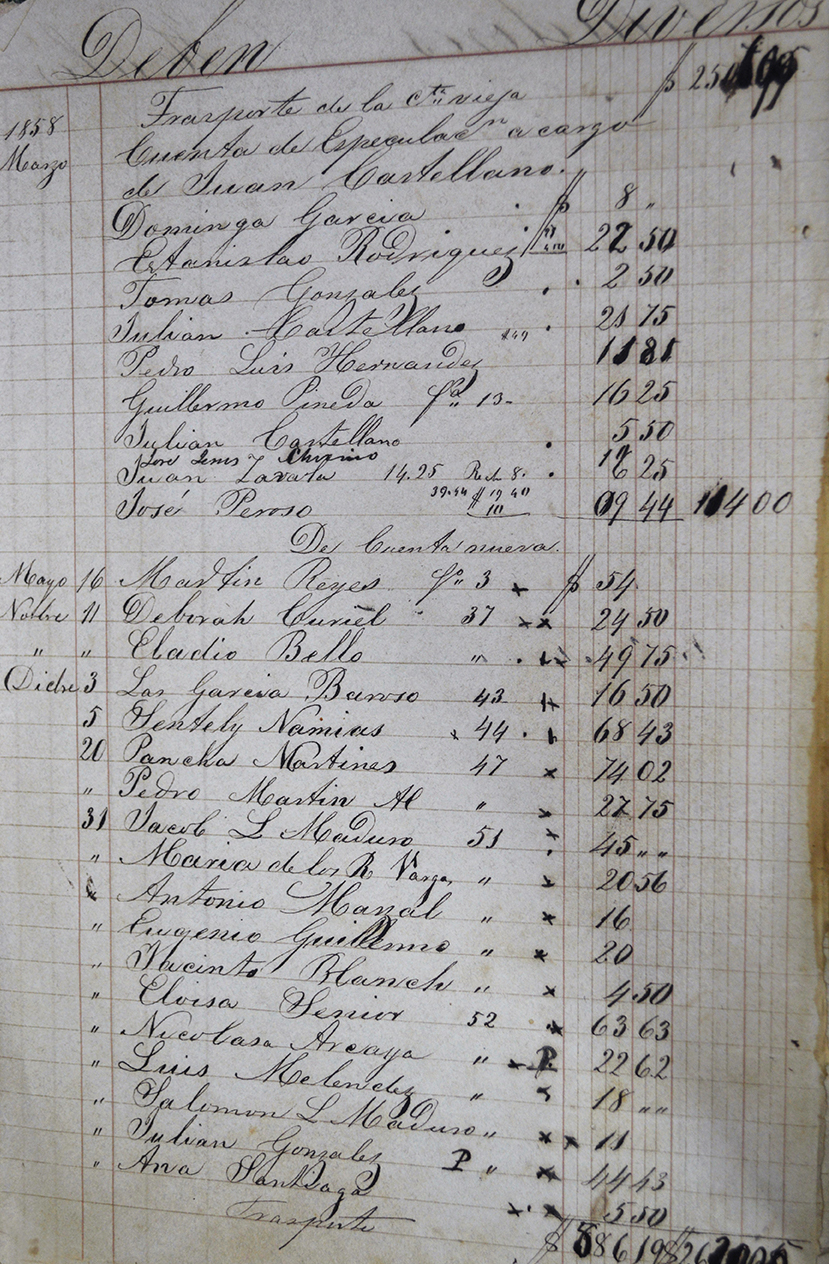 Deben Diversos
Trasporte de la cta vieja $
1858 Cuenta de Especulacn a cargo
Marzo de Juan Castellano.
Dominga Garcia $ 8 "
Estanislao Rodriguez 22 50
Tomas Gonzalez 2 50
Julian Castellano 21 75
Pedro Luis Hernandez 11 81
Guillermo Pineda fo 13 16 25
Julian Castellano 5 50
Juan Zavala 14.25 25
José Peroso 39.44 44 00
De Cuenta nueva.
Mayo 16 Martin Reyes fo 3 x $ 54
Novbre 11 Deborah Curiel " 37 xx 24 50
" " Eladio Bello " 49 75
Dicbre 3 Los Garcia Baroso 43 x 16 50
5 Sentely Namias 44 68 43
20 Pancha Martines 47 x 74 02
" Pedro Martin Al " x 27 75
31 Jacob L Maduro 51 x 45 " "
" Maria de los R Vargas " x 20 56
Antonio Mazal " x 16
" Eugenio Guillermo " x 20
" Jacinto Blanch " x 4.50
" Eloisa Senior 52 x 63 63
" Nicolasa Arcaya " x P. 22 62
" Luis Melendez " x 18 " "
" Salomon L Maduro " xx 11
" Julian Gonzalez P " x 44 43
" Ana Santiaga xx 5 50
Trasporte $ 586 19